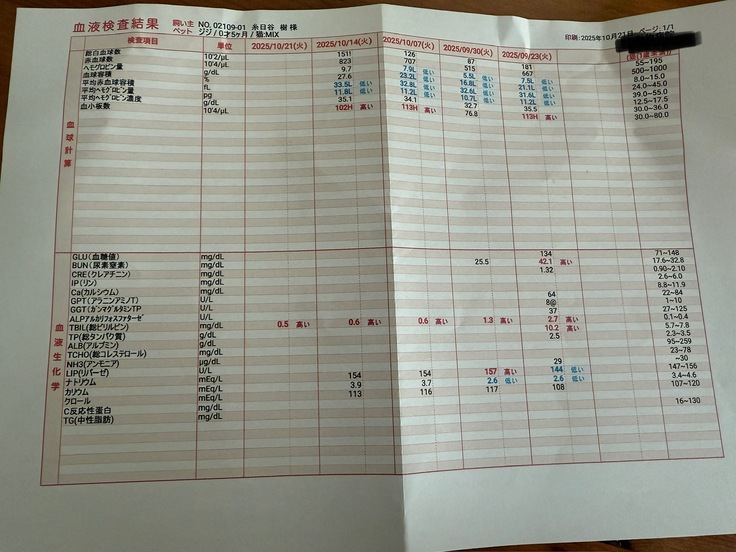 血液検査結果 飼い主 NO. 02109-01 糸日谷 樹 様
ペット ジジ / 0才5ヶ月 / 猫:MIX
印刷: 2025年10月21日 ページ: 1/1
検査項目 単位 2025/10/21(火) 2025/10/14(火) 2025/10/07(火) 2025/09/30(火) 2025/09/23(火)
血球計算
総白血球数 10^2/μL 151! 126 87 181 55~195
赤血球数 10^4/μL 823 707 515 667 500~1000
ヘモグロビン量 g/dL 9.7 7.9L 低い 5.5L 低い 7.5L 低い 8.0~15.0
血球容積 % 27.6 23.2L 低い 16.8L 低い 21.1L 低い 24.0~45.0
平均赤血球容積 fL 33.5L 低い 32.8L 低い 32.6L 低い 31.6L 低い 39.0~55.0
平均ヘモグロビン量 pg 11.8L 低い 11.2L 低い 10.7L 低い 11.2L 低い 12.5~17.5
平均ヘモグロビン濃度 g/dL 35.1 34.1 32.7 35.5 30.0~36.0
血小板数 10^4/μL 102H 高い 113H 高い 76.8 113H 高い 30.0~80.0
血液生化学
GLU(血糖値) mg/dL 134 71~148
BUN(尿素窒素) mg/dL 25.5 42.1 高い 17.6~32.8
CRE(クレアチニン) mg/dL 1.32 0.90~2.10
IP(リン) mg/dL 2.6~6.0
Ca(カルシウム) mg/dL 8.8~11.9
GPT(アラニンアミノT) U/L 64 22~84
GGT(ガンマグルタミンTP U/L 8@ 1~10
ALPアルカリフォスファターゼ U/L 37 27~125
TBIL(総ビリルビン) mg/dL 0.5 高い 0.6 高い 0.6 高い 1.3 高い 2.7 高い 0.1~0.4
TP(総タンパク質) g/dL 10.2 高い 5.7~7.8
ALB(アルブミン) g/dL 2.5 2.3~3.5
TCHO(総コレステロール) mg/dL 95~259
NH3(アンモニア) μg/dL 29 23~78
LIP(リパーゼ) U/L ~30
ナトリウム mEq/L 154 154 157 高い 144 低い 147~156
カリウム mEq/L 3.9 3.7 2.6 低い 2.6 低い 3.4~4.6
クロール mEq/L 113 116 117 108 107~120
C反応性蛋白 mg/dL
TG(中性脂肪) mg/dL 16~130